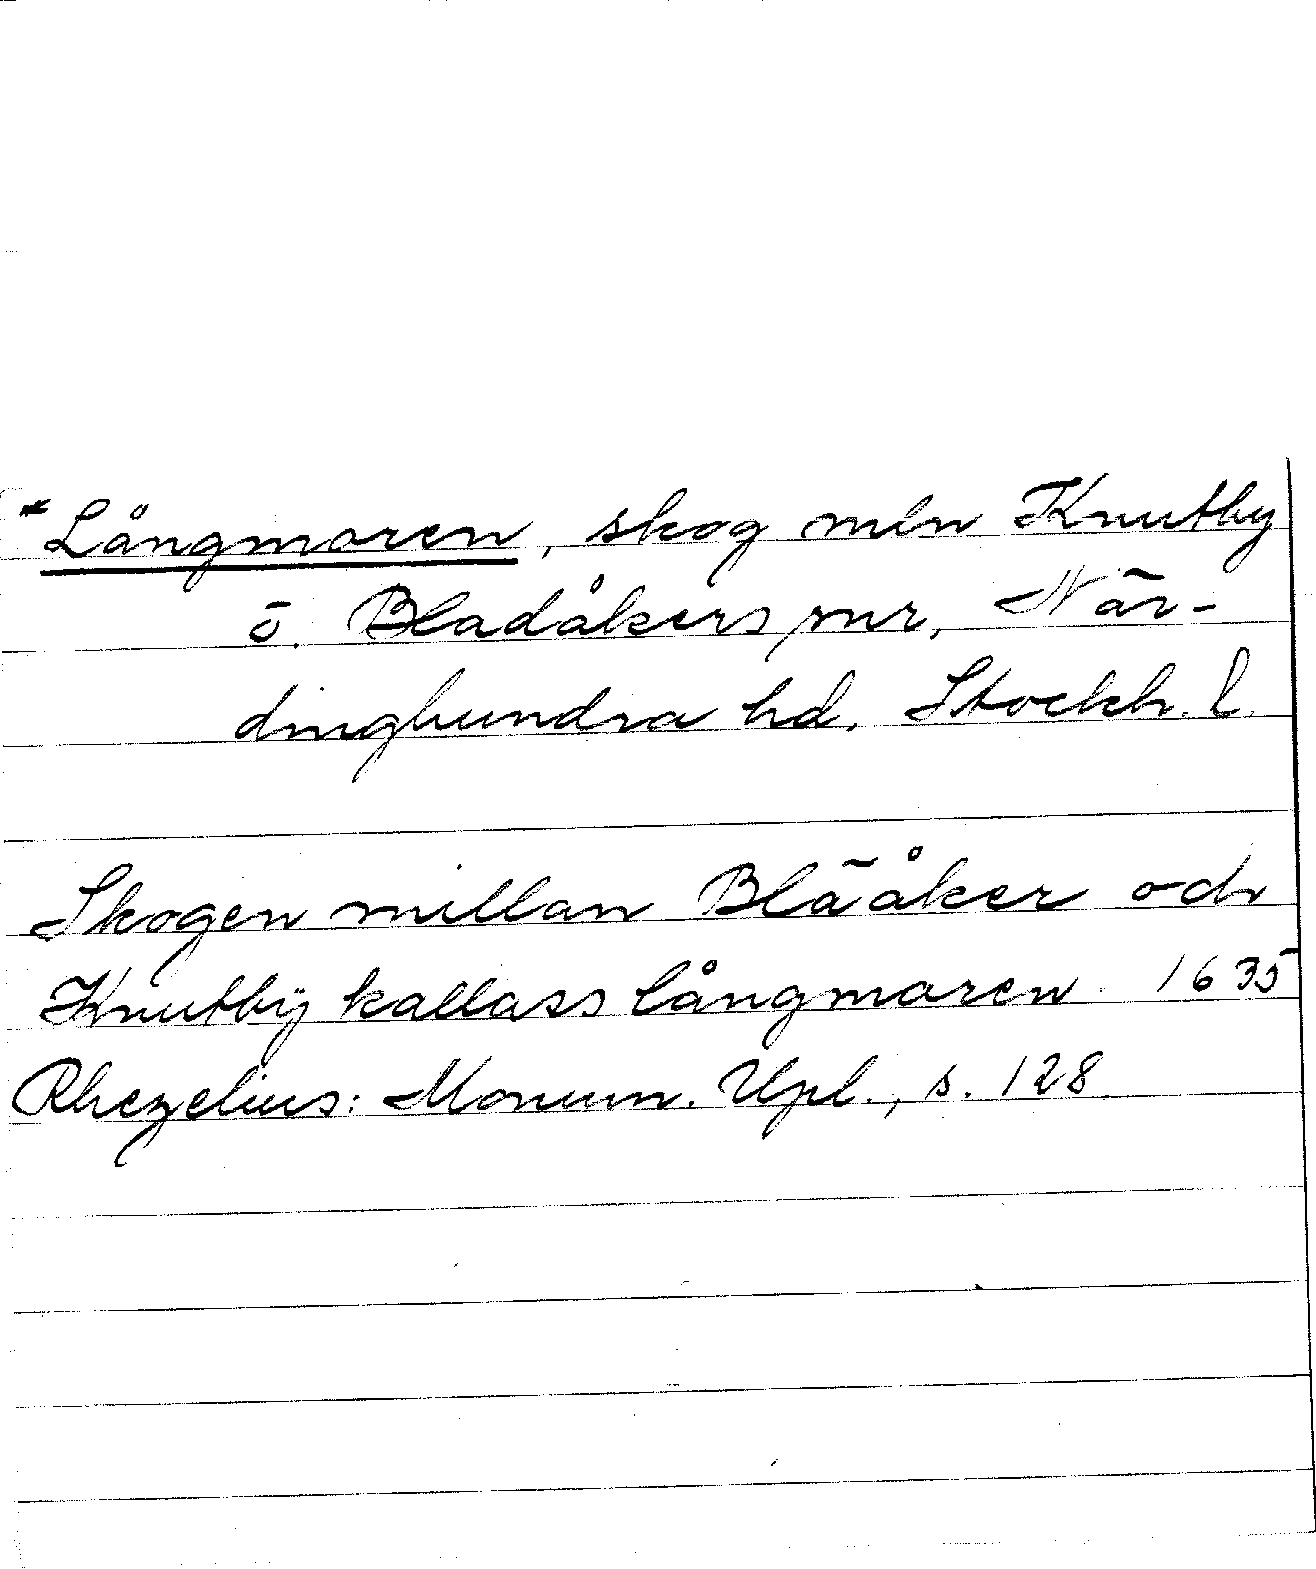 *Långmoren, skog mln Knutby
o. Bladåkers snr, När-
dinghundra hd. Stockh. l.
Skogen millan Blääker och
Knutbÿ kallass långmoren 1635
Rhezelius: Monum. Upl., s. 128.